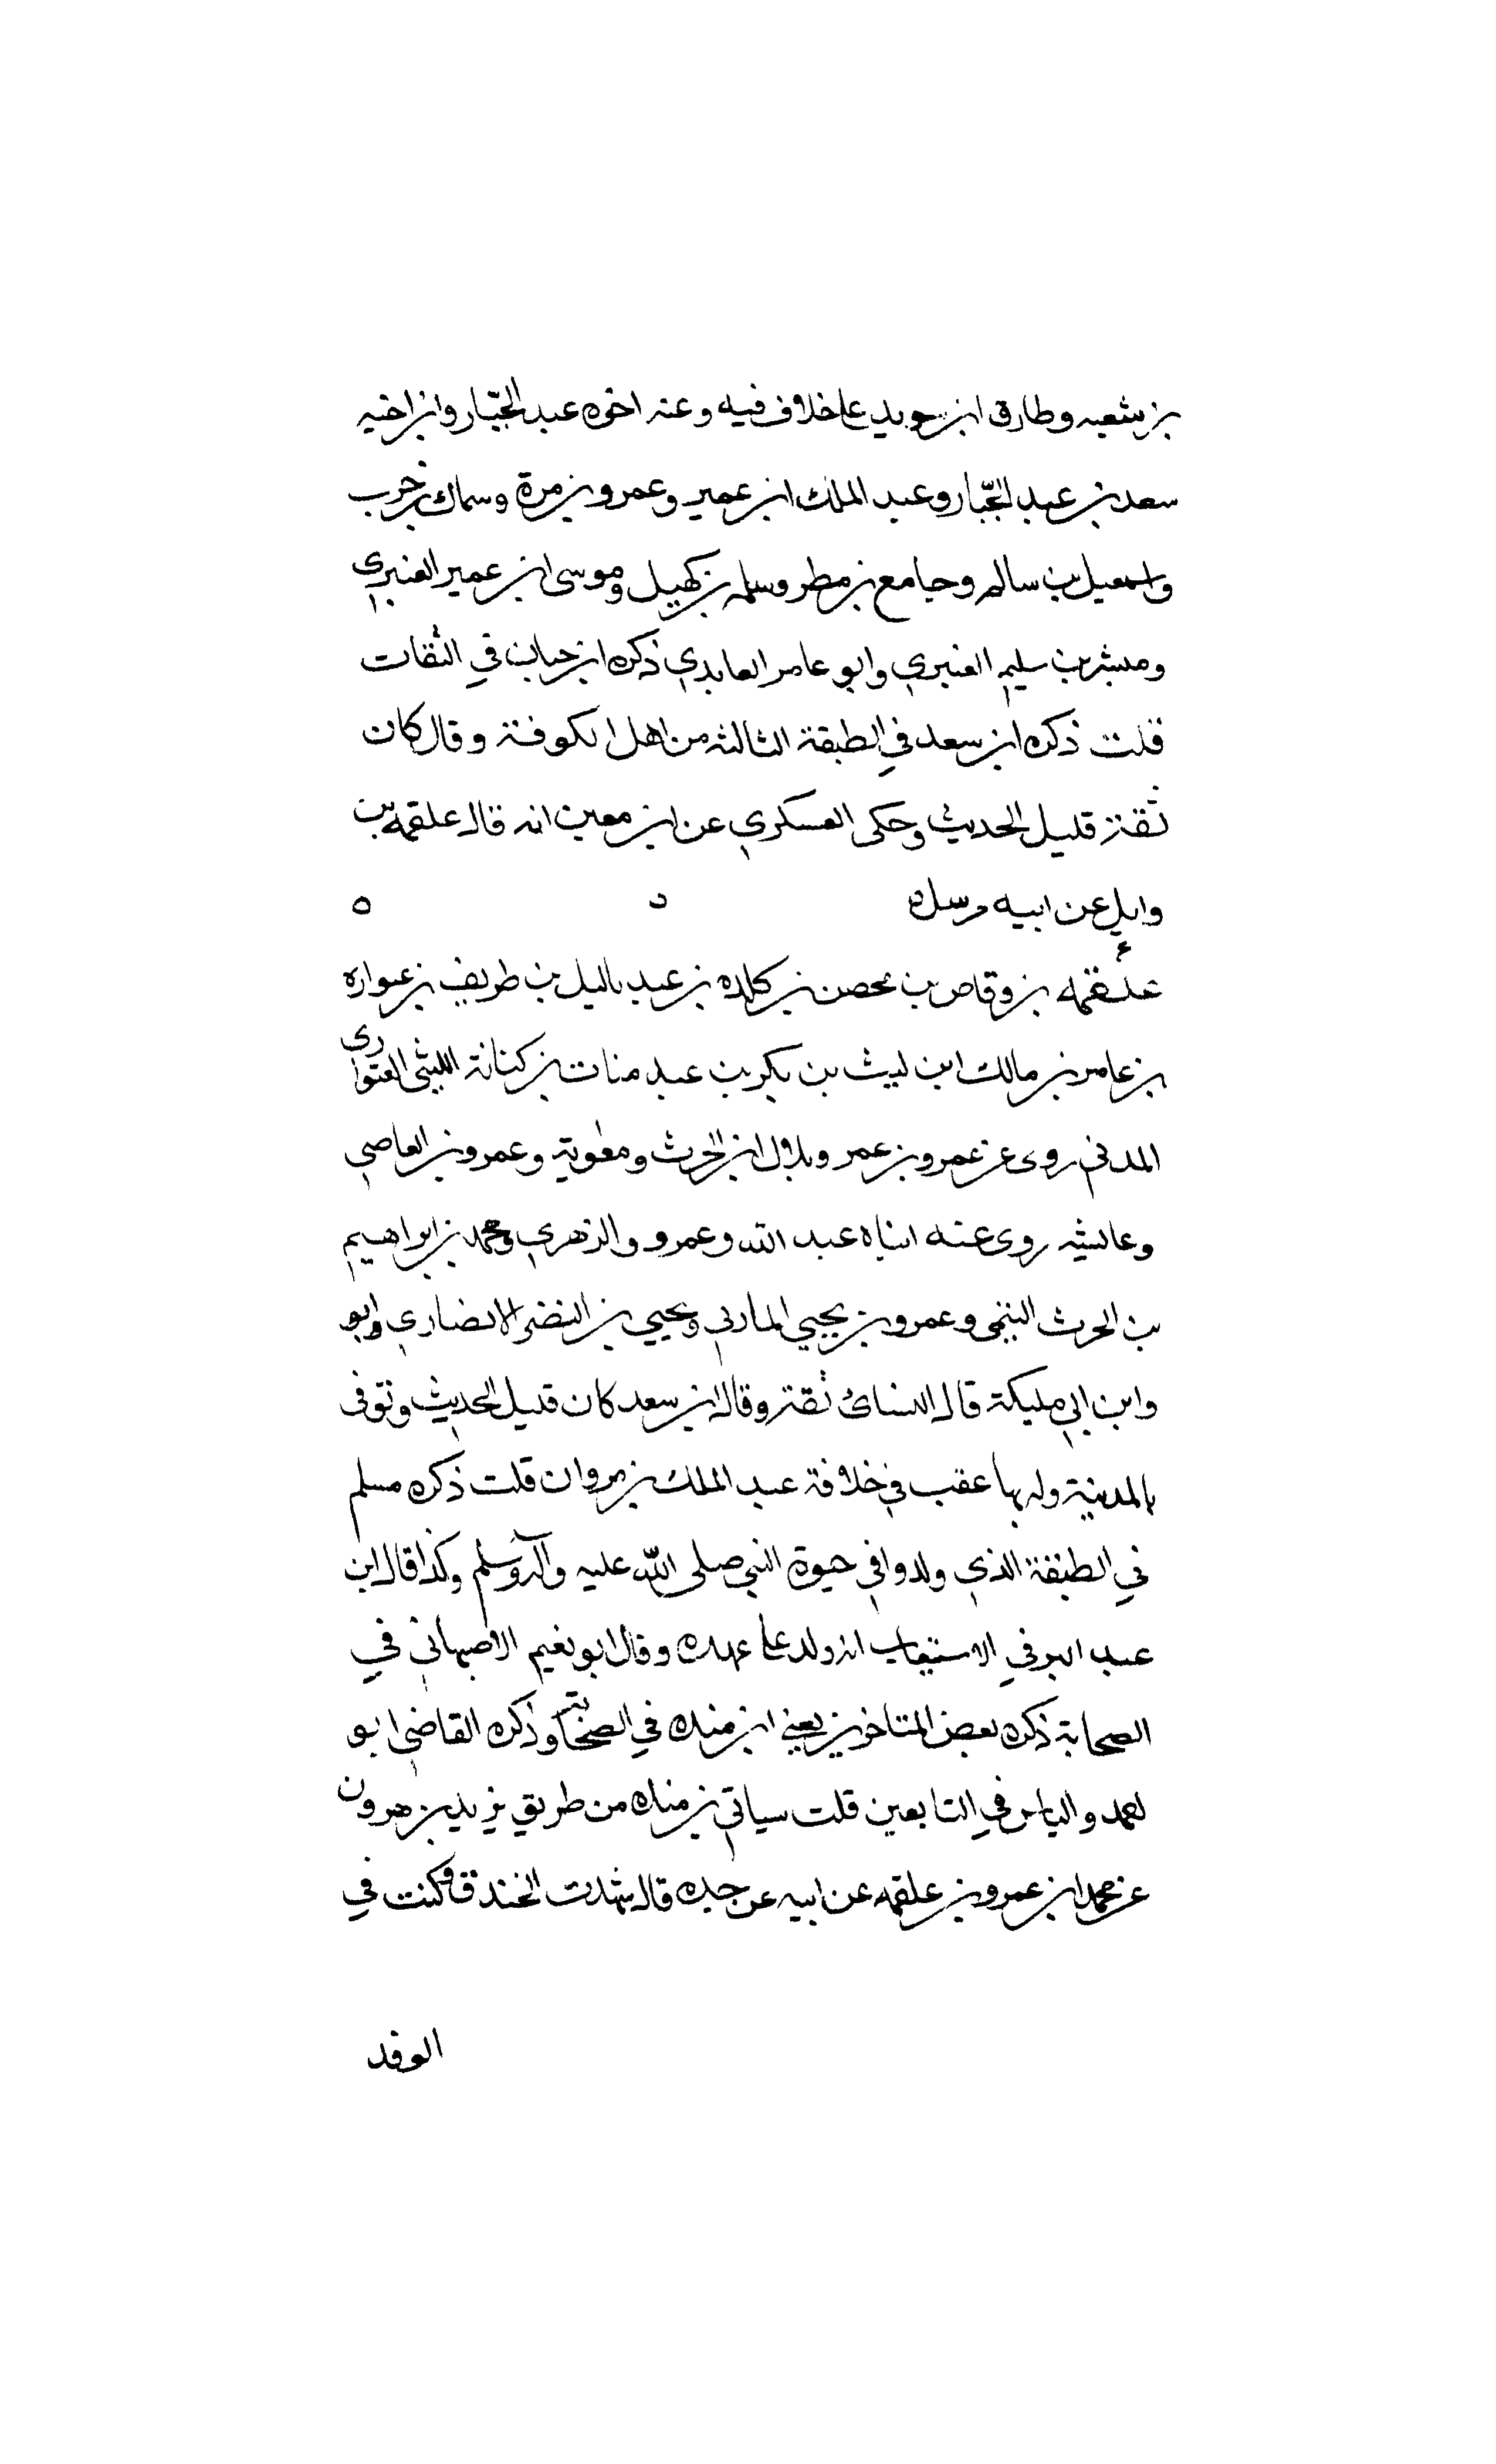 بن شعبه وطارق ابن سويد على خلاف فيه وعنه اخوه عبد الجبّار وابن اخيه
سعد بن عبد الجبّار وعبد الملك ابن عمير وعمرو بن مرة وسماك بن حرب
واسمعيل بن سالم وجامع بن مطر وسلمه بن كهيل وموسى ابن عمير العنبري
ومبشر بن سليم العنبري وابو عامر العابدي ذكره ابن حبان في الثقات
قلت ذكره ابن سعد في الطبقة الثالثه من اهل الكوفة وقال كان
ثقة قليل الحديث وحكى العسكري عن ابن معين انه قال علقمه بن
وايل عن ابيه مرسله
ع
علقمه بن وقاص بن محصن بن كلده بن عبد ياليل بن طريف بن عتواره
بن عامر بن مالك ابن ليث بن بكر بن عبد منات بن كنانة الليثي العتواري
المدني روى عن عمرو بن عمر وبلال ابن الحرث ومعوية وعمرو بن العاصي
وعايشه روى عنه ابناه عبد الله وعمرو والزهري ومحمد بن ابراهيم
بن الحرث التيمي وعمرو بن يحيي المازني ويحيي بن النضر الانصاري وابو
وابن ابي مليكة قال النسائ ثقة وقال ابن سعد كان قليل الحديث وتوفى
بالمدينة وله بها عقب في خلافة عبد الملك بن مروان قلت ذكره مسلم
في الطبقة الذي ولدوا في حيوة النبي صلى الله عليه وآله وسلم وكذا قال ابن
عبد البر في الاستيعاب انه ولد على عهده وقال ابو نعيم الاصبهاني في
الصحابة ذكره بعض المتاخرين يعني ابن منده في الصحابة وذكره القاضي ابو
احمد والناس في التابعين قلت سياتي بن منده من طريق يزيد بن هرون
عن محمد ابن عمرو بن علقمه عن ابيه عن جده قال شهدت الخندق وكنت في
الوفد